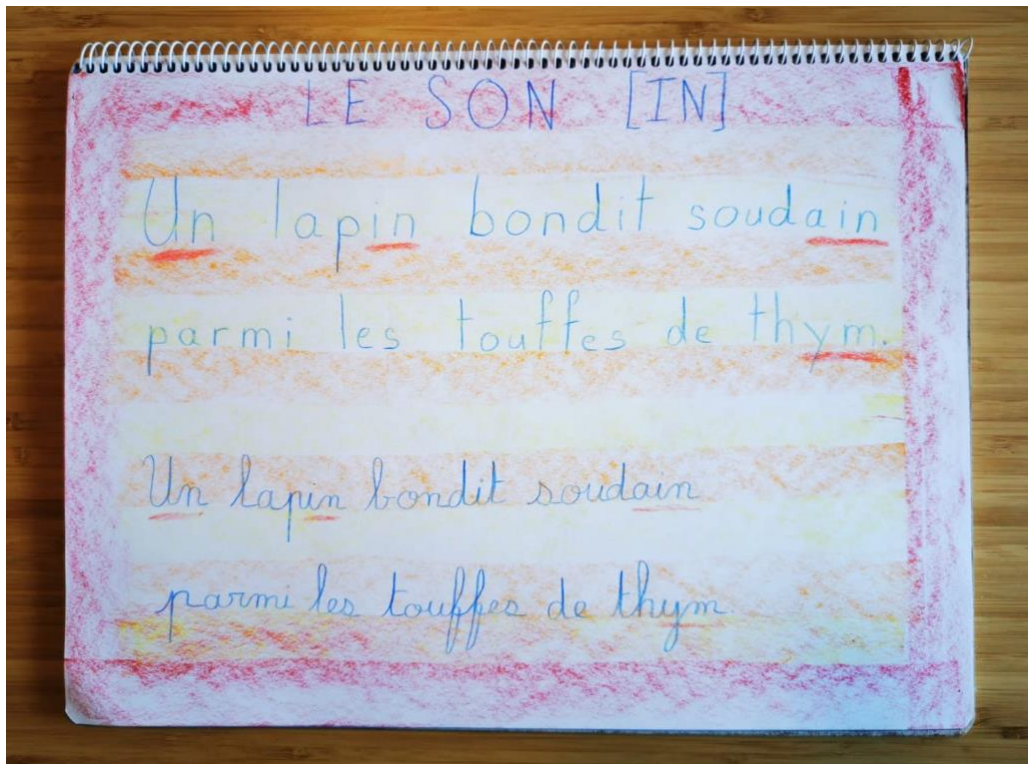 LE SON [IN]
Un lapin bondit soudain
parmi les touffes de thym.
Un lapin bondit soudain
parmi les touffes de thym.